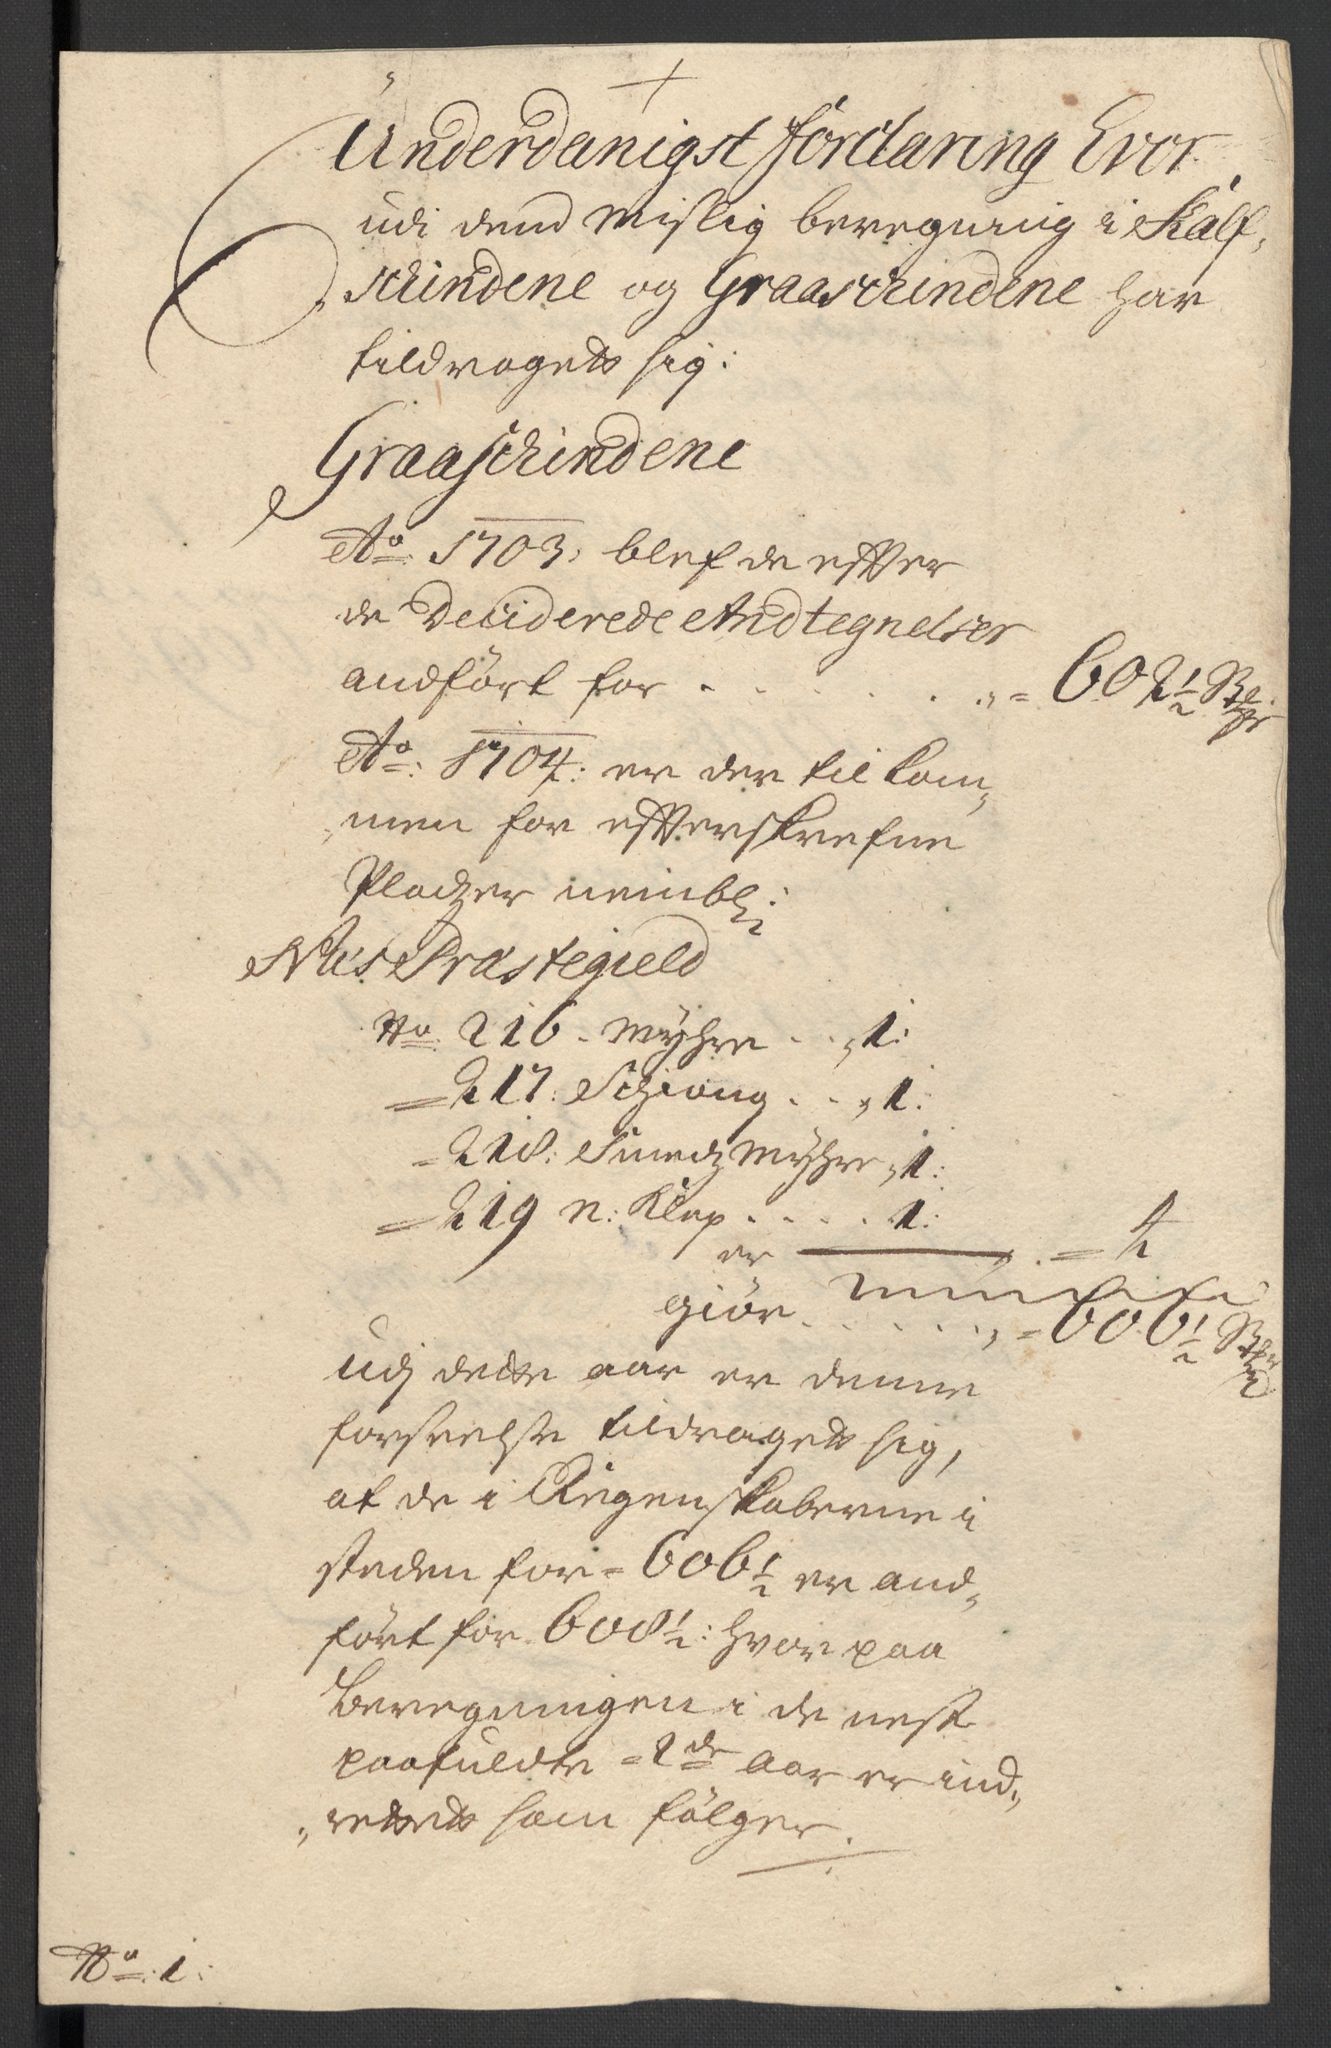 Underdanigst forclaring hvor
udi dend Mislig beregning i Kalf,
schindene og Graaschindene har
tildraget sig:
Graaschindene
Ao 1703: blef de effter
de Deciderede Andtegnelser
andført for . . . . . . . = 602½
Ao: 1704: er der til kom,
men for effterskrefne
Pladzer nembl:
Næs Præstegield
No 216 . Myhre . . , 1:
= 217: Schioug . . , 1:
= 218: Smedz Myhre , 1:
= 219 n: Klep . . . . 1:
er . = 4
giør . . . . . , = 606½
udj dette aar er denne
forseelse tildraget sig,
at de i Regenskaberne i
steden for = 606½ er and,
ført for 608½: hvor paa
Beregningen i de nest
paafuldte = 2de aar er ind,
rettet som følger.
No: 1: